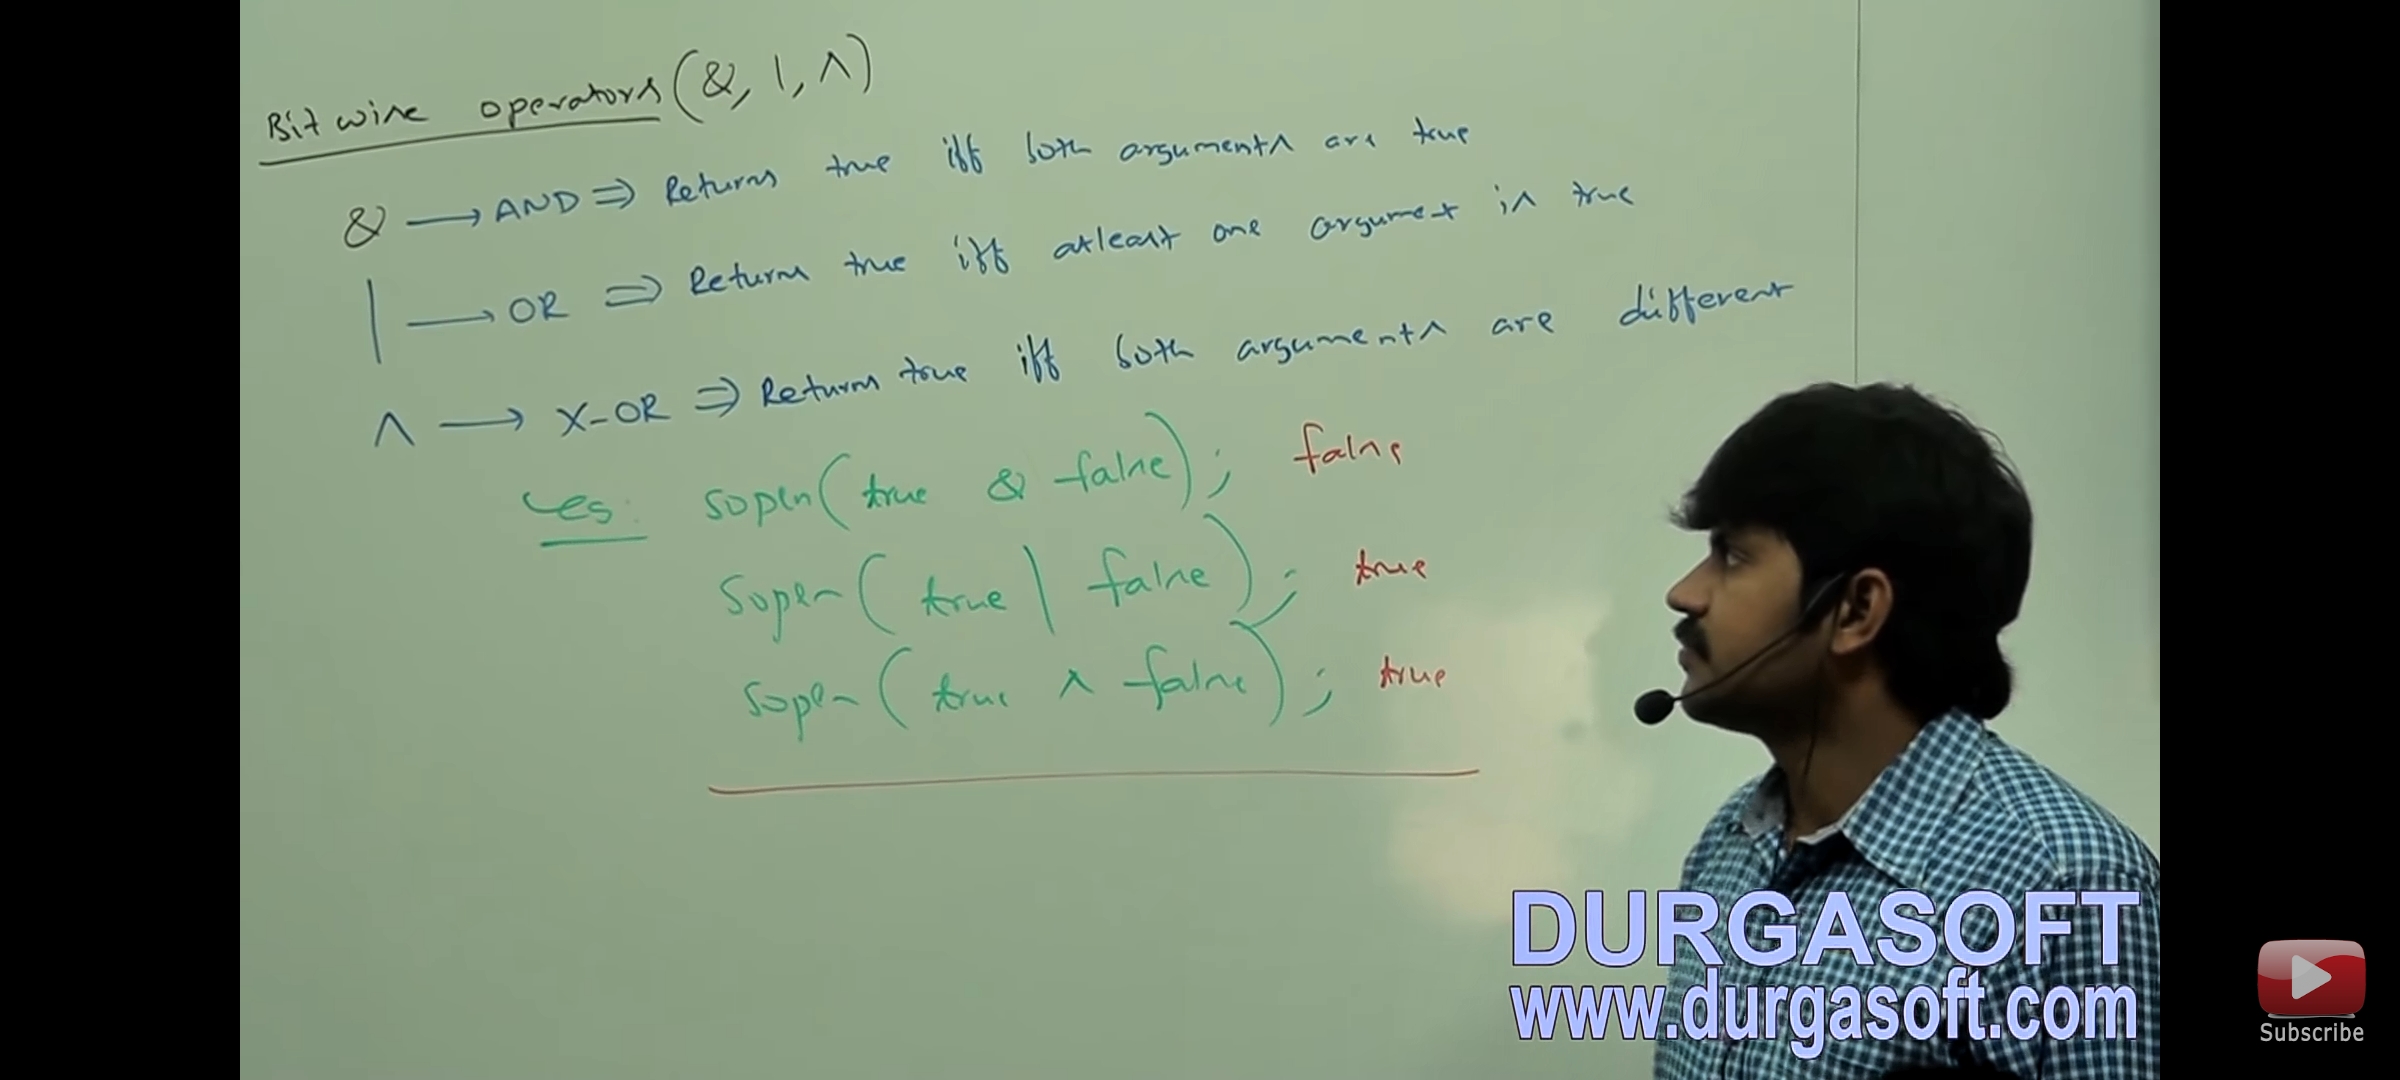 Bitwise operators (&, |, ^)
& → AND ⇒ Returns true iff both arguments are true
| → OR ⇒ Returns true iff atleast one argument is true
^ → X-OR ⇒ Returns true iff both arguments are different
eg: sopln(true & false); false
sopln(true | false); true
sopln(true ^ false); true
DURGASOFT
www.durgasoft.com
Subscribe